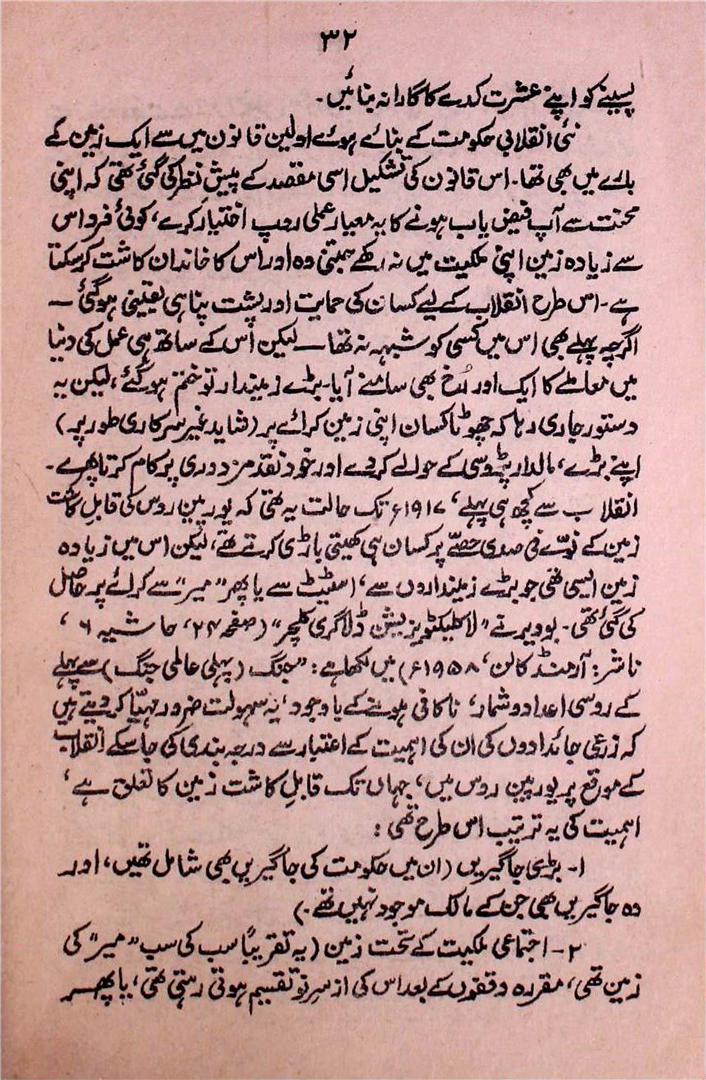 ۳۲
پسینے کو اپنے عشرت کدے کا گارا نہ بنائیں۔
نئی انقلابی حکومت کے بنائے ہوئے اولین قانون میں سے ایک زمین کے
بارے میں بھی تھا۔ اس قانون کی تشکیل اسی مقصد کے پیش نظر کی گئی تھی کہ اپنی
محنت سے آپ فیض یاب ہونے کا یہ معیار عملی روپ اختیار کرے، کوئی فرد اس
سے زیادہ زمین اپنی ملکیت میں نہ رکھے جتنی وہ اور اس کا خاندان کاشت کر سکتا
ہے۔ اس طرح انقلاب کے لیے کسان کی حمایت اور پشت پناہی یقینی ہو گئی —
اگرچہ پہلے بھی اس میں کسی کو شبہہ نہ تھا — لیکن اس کے ساتھ ہی عمل کی دنیا
میں معاملے کا ایک اور رُخ بھی سامنے آیا۔ بڑے زمیندار تو ختم ہو گئے، لیکن یہ
دستور جاری رہا کہ چھوٹا کسان اپنی زمین کرائے پر (شاید غیر سرکاری طور پر)
اپنے بڑے، مالدار پڑوسی کے حوالے کر دے اور خود نقد مزدوری پر کام کرتا پھرے۔
انقلاب سے کچھ ہی پہلے، ۱۹۱۷ء تک حالت یہ تھی کہ یورپین روس کی قابلِ کاشت
زمین کے نوّے فی صدی حصّے پر کسان ہی کھیتی باڑی کرتے تھے، لیکن اس میں زیادہ
زمین ایسی تھی جو بڑے زمینداروں سے، اسٹیٹ سے یا پھر ”میر“ سے کرائے پر حاصل
کی گئی تھی۔ بوویر نے ”لاکلیکٹویزیشن ڈلاگری کلچر“ (صفحہ ۲۴، حاشیہ ۶،
ناشر: آرمنڈ کالن، ۱۹۵۸ء) میں لکھا ہے: ”جنگ (پہلی عالمی جنگ) سے پہلے
کے روسی اعداد و شمار، ناکافی ہونے کے باوجود، یہ سہولت ضرور مہیّا کر دیتے ہیں
کہ زرعی جائدادوں کی ان کی اہمیت کے اعتبار سے درجہ بندی کی جا سکے انقلاب
کے موقع پر یورپین روس میں، جہاں تک قابلِ کاشت زمین کا تعلق ہے،
اہمیت کی یہ ترتیب اس طرح تھی:
۱۔ بڑی جاگیریں (ان میں حکومت کی جاگیریں بھی شامل تھیں، اور
وہ جاگیریں بھی جن کے مالک موجود نہیں تھے۔)
۲۔ اجتماعی ملکیت کے تحت زمین (یہ تقریباً سب کی سب ”میر“ کی
زمین تھی، مقررہ وقفوں کے بعد اس کی از سرِ نو تقسیم ہوتی رہتی تھی، یا پھر